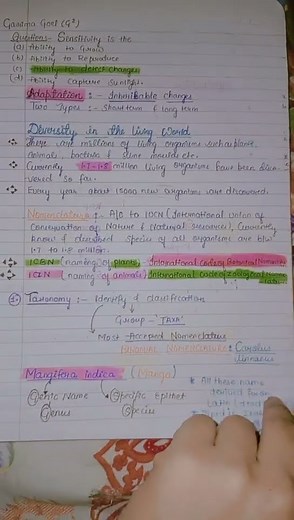 Garima Goel (G²)
Questions:- Sensitivity is the
(a) Ability to Grow
(b) Ability to Reproduce
(c) Ability to detect changes
(d) Ability capture sunlight.
Adaptation :- Inheritable changes
Two Types :- Short term & long term
Diversity in the living World
There are millions of living organisms such as plants,
animals, bacteria & slime moulds etc.
Currently 1.7-1.8 million living organisms have been disco-
vered so far.
Every year about 15000 new organisms are discovered.
Nomenclature :- A/c to IUCN (International union of
Conservation of Nature & Natural resources), Currently
known & described species of all organisms are b/w
1.7 to 1.8 million.
ICBN (naming of plants) International Code of Botanical
ICZN (naming of animals) International Code of Zoological
1. Taxonomy :- Identify & classification
Group - "TAXA"
Most Accepted Nomenclature
Binomial Nomenclature : Carolus
Linnaeus
Mangifera indica : (Mango)
Generic Name Specific Epithet
Genus Species
* All these name
Latin